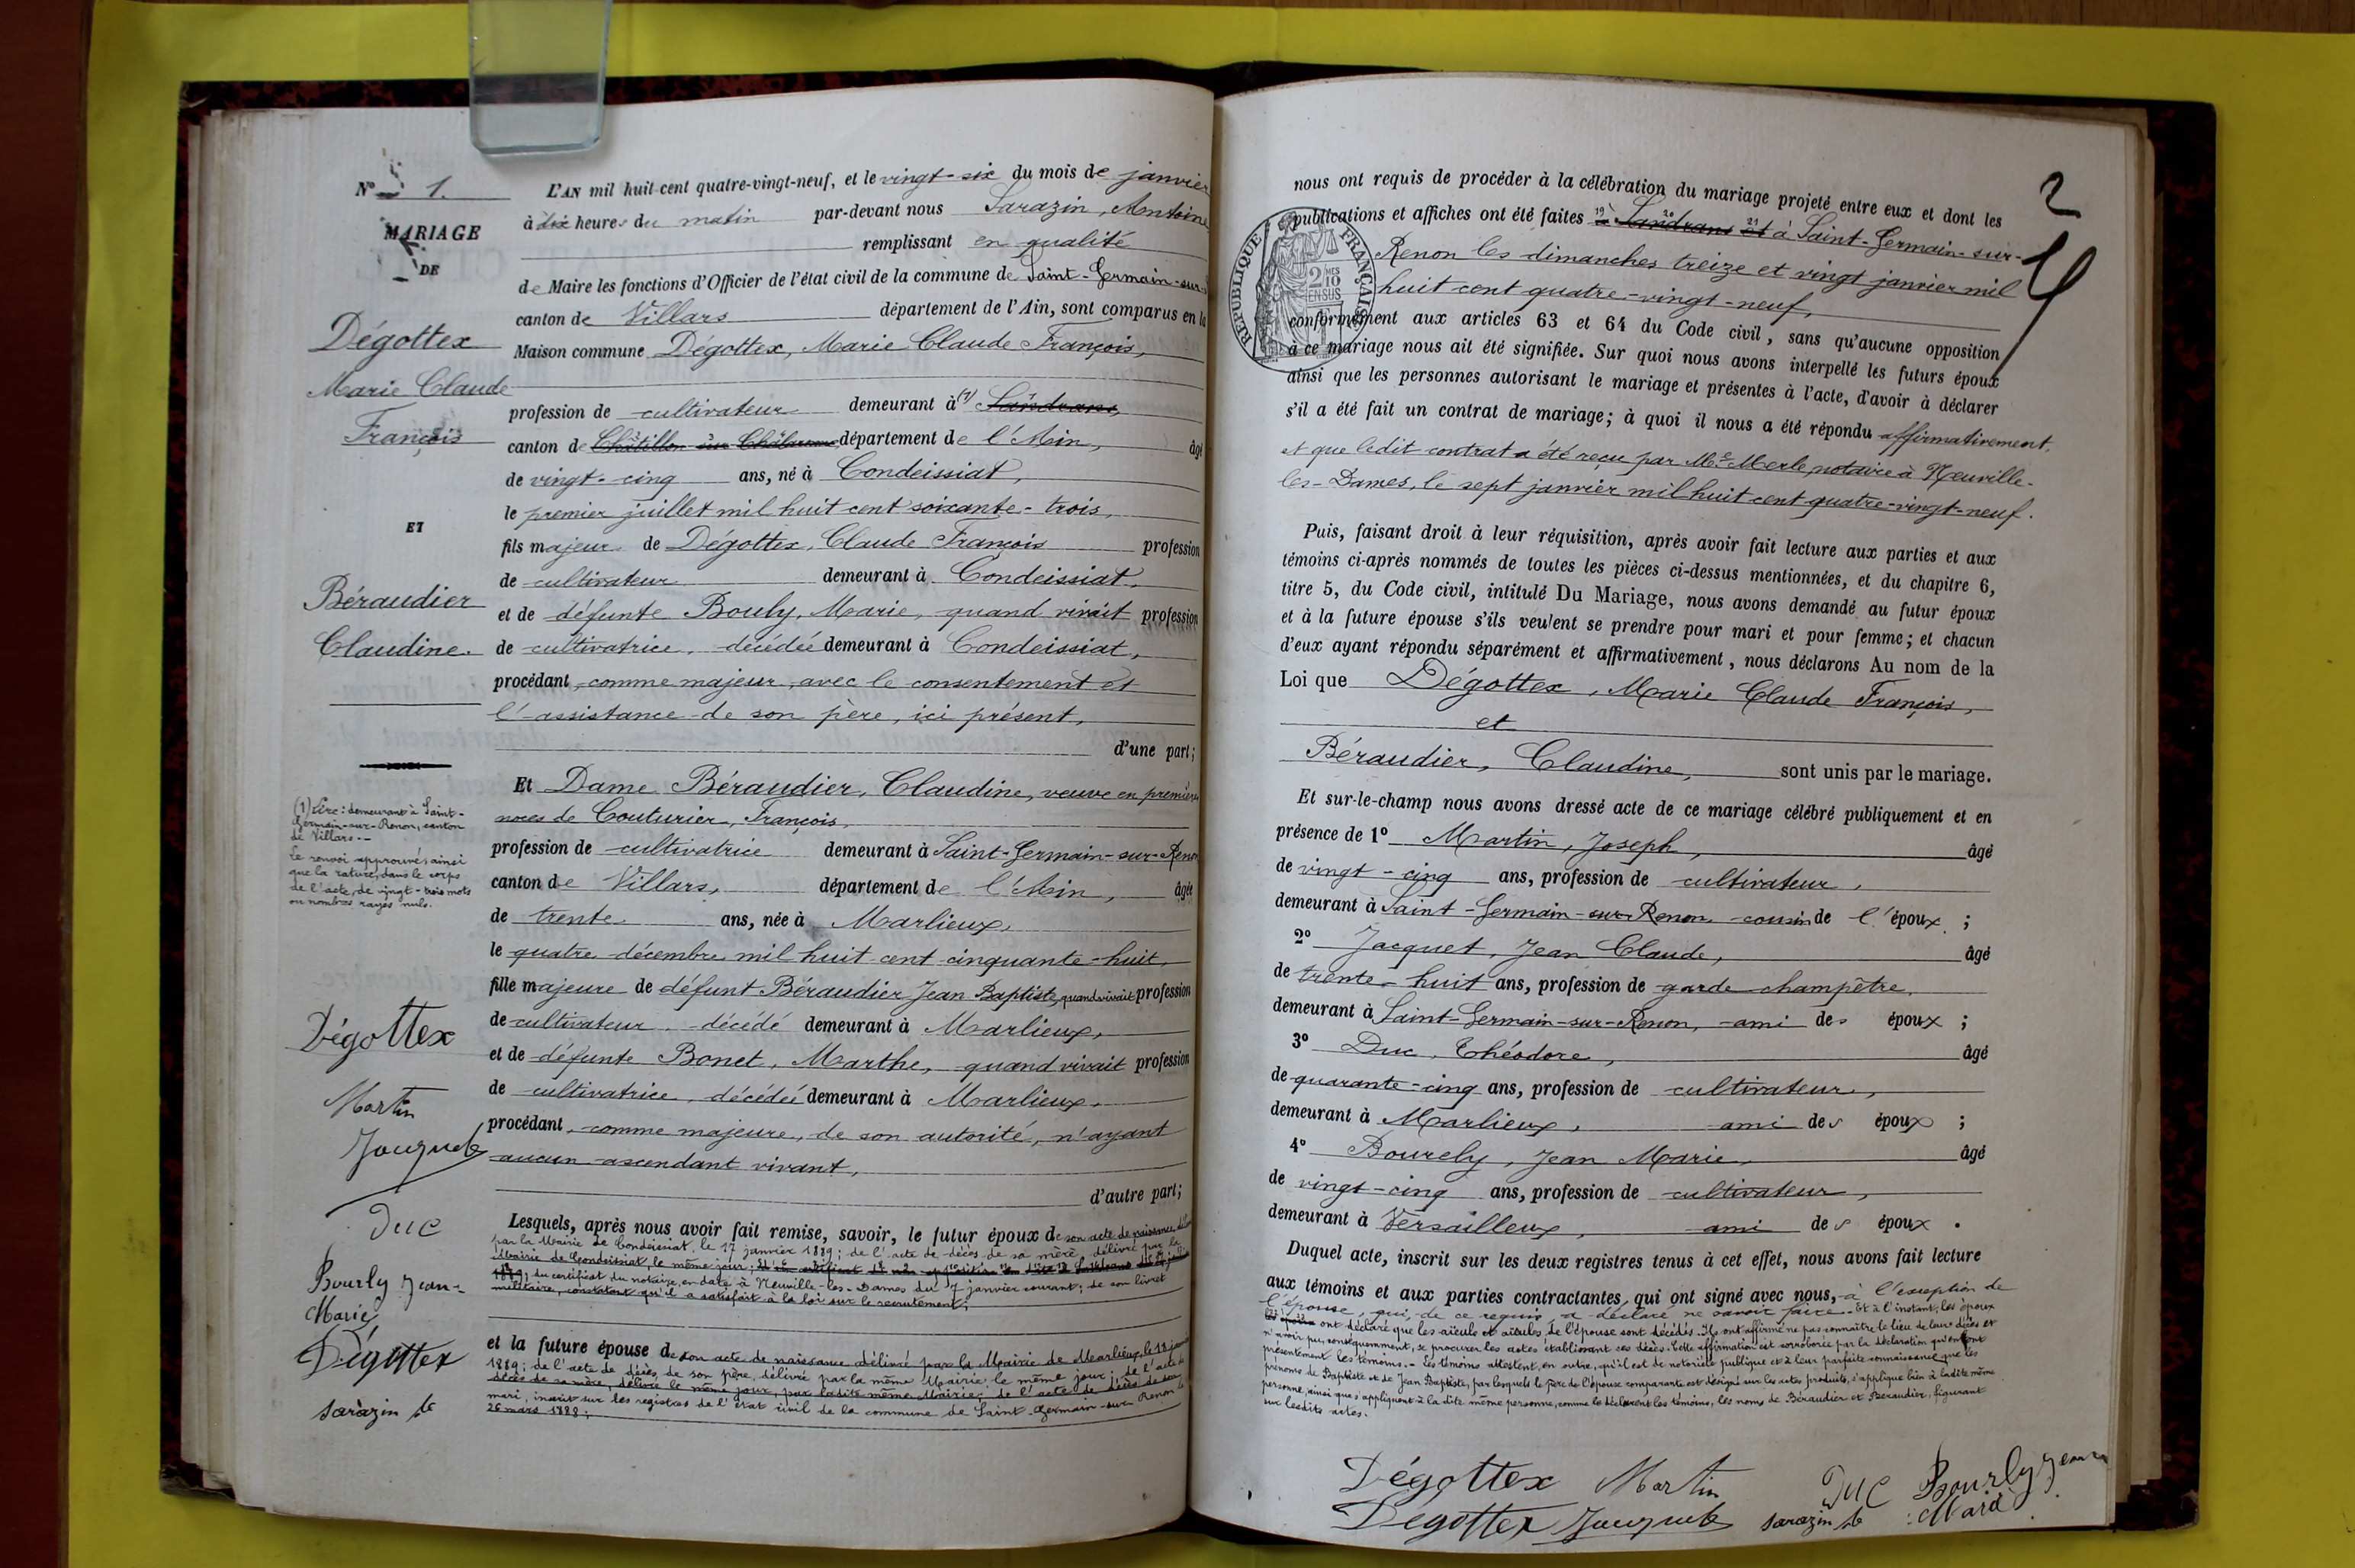 N° 1.
MARIAGE
DE
Dégottex
Marie Claude
François
ET
Béraudier
Claudine.
(1) Lire: demeurant à Saint-
Germain-sur-Renon, canton
de Villars.-
Le renvoi approuvé, ainsi
que la rature, dans le corps
de l'acte, de vingt-trois mots
ou nombres rayés nuls.
Dégottex
Martin
Jacquet
Duc
Bourly Jean-
Marie
Dégottex
Sarazin
L'AN mil huit cent quatre-vingt-neuf, et le vingt-six du mois de janvier
à dix heures du matin par-devant nous Sarazin, Antoine
remplissant en qualité
de Maire les fonctions d'Officier de l'état civil de la commune de Saint-Germain-sur-
canton de Villars département de l'Ain, sont comparus en la
Maison commune Dégottex, Marie Claude François,
profession de cultivateur demeurant à (1) Sandrans,
canton de Châtillon sur Chalaronne département de l'Ain, âgé
de vingt-cinq ans, né à Condeissiat,
le premier juillet mil huit cent soixante-trois,
fils majeur de Dégottex, Claude François profession
de cultivateur demeurant à Condeissiat,
et de défunte Bouly, Marie, quand vivait profession
de cultivatrice, décédée demeurant à Condeissiat,
procédant, comme majeur, avec le consentement et
l'assistance de son père, ici présent,
d'une part;
Et Dame Béraudier, Claudine, veuve en premières
noces de Couturier, François,
profession de cultivatrice demeurant à Saint-Germain-sur-Renon
canton de Villars, département de l'Ain, âgée
de trente ans, née à Marlieux,
le quatre décembre mil huit cent cinquante-huit,
fille majeure de défunt Béraudier Jean Baptiste, quand vivait profession
de cultivateur, décédé demeurant à Marlieux,
et de défunte Bonet, Marthe, quand vivait profession
de cultivatrice, décédée demeurant à Marlieux,
procédant, comme majeure, de son autorité, n'ayant
aucun ascendant vivant,
d'autre part;
Lesquels, après nous avoir fait remise, savoir, le futur époux de son acte de naissance délivré
par la Mairie de Condeissiat, le 17 janvier 1889; de l'acte de décès de sa mère, délivré par la
Mairie de Condeissiat, le même jour;
1889; du certificat du notaire, en date à Neuville-les-Dames du 7 janvier courant; de son livret
militaire, constatant qu'il a satisfait à la loi sur le recrutement;
et la future épouse de son acte de naissance délivré par la Mairie de Marlieux, le 18 janvier
1889; de l'acte de décès de son père, délivré par la même Mairie, le même jour; de l'acte de
décès de sa mère, délivré le même jour, par ladite même Mairie; de l'acte de décès de son
mari, inscrit sur les registres de l'état civil de la commune de Saint-Germain-sur-Renon le
26 mars 1888;
2
nous ont requis de procéder à la célébration du mariage projeté entre eux et dont les
publications et affiches ont été faites à Sandrans et à Saint-Germain-sur-
Renon les dimanches treize et vingt janvier mil
huit cent quatre-vingt-neuf,
RÉPUBLIQUE FRANÇAISE
2 10
MES
EN SUS
conformément aux articles 63 et 64 du Code civil, sans qu'aucune opposition
à ce mariage nous ait été signifiée. Sur quoi nous avons interpellé les futurs époux
ainsi que les personnes autorisant le mariage et présentes à l'acte, d'avoir à déclarer
s'il a été fait un contrat de mariage; à quoi il nous a été répondu affirmativement,
et que ledit contrat a été reçu par Me Merle, notaire à Neuville-
les-Dames, le sept janvier mil huit cent quatre-vingt-neuf.
Puis, faisant droit à leur réquisition, après avoir fait lecture aux parties et aux
témoins ci-après nommés de toutes les pièces ci-dessus mentionnées, et du chapitre 6,
titre 5, du Code civil, intitulé Du Mariage, nous avons demandé au futur époux
et à la future épouse s'ils veulent se prendre pour mari et pour femme; et chacun
d'eux ayant répondu séparément et affirmativement, nous déclarons Au nom de la
Loi que Dégottex, Marie Claude François,
et
Béraudier, Claudine, sont unis par le mariage.
Et sur-le-champ nous avons dressé acte de ce mariage célébré publiquement et en
présence de 1° Martin, Joseph, âgé
de vingt-cinq ans, profession de cultivateur,
demeurant à Saint-Germain-sur-Renon cousin de l'époux;
2° Jacquet, Jean Claude, âgé
de trente-huit ans, profession de garde champêtre,
demeurant à Saint-Germain-sur-Renon, ami des époux;
3° Duc, Théodore, âgé
de quarante-cinq ans, profession de cultivateur,
demeurant à Marlieux, ami des époux;
4° Bourely, Jean Marie, âgé
de vingt-cinq ans, profession de cultivateur,
demeurant à Versailleux, ami des époux.
Duquel acte, inscrit sur les deux registres tenus à cet effet, nous avons fait lecture
aux témoins et aux parties contractantes, qui ont signé avec nous, à l'exception de
l'épouse, qui, de ce requis, a déclaré ne savoir faire.- Et à l'instant, les époux
ont déclaré que les aïeuls et aïeules de l'épouse sont décédés. Ils ont affirmé ne pas connaître le lieu de leurs décès et
n'avoir pu, conséquemment, se procurer les actes établissant ces décès. Cette affirmation est corroborée par la déclaration qu'en font
présentement les témoins.- Les témoins attestent, en outre, qu'il est de notoriété publique et à leur parfaite connaissance que les
prénoms de Baptiste et de Jean Baptiste, par lesquels le père de l'épouse comparante est désigné sur les actes produits, s'applique bien à ladite même
personne, ainsi que s'appliquent à la dite même personne, comme le déclarent les témoins, les noms de Béraudier et Beraudier, figurant
sur lesdits actes.
Dégottex Martin Duc Bourly Jean
Dégottex Jacquet Sarazin Marie